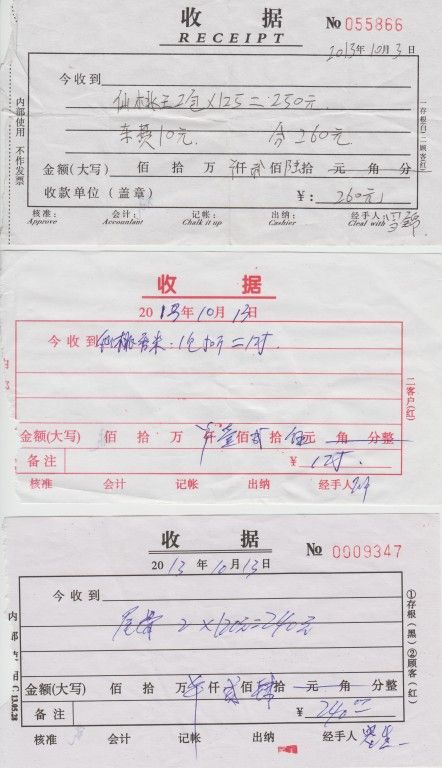 收 据
RECEIPT
No 055866
2013年10月3日
今收到
仙桃王2包×125=250元
车费10元. 合260元
金额(大写) 佰 拾 万 仟贰佰陆拾 元 角 分
收款单位(盖章) ¥: 260元
核准: 会计: 记帐: 出纳: 经手人:
Approve Accountant Chalk it up Cashier Cleal with
内部使用 不作发票
一存根(白)二顾客(红)
收 据
2013年10月13日
今收到仙桃香米:1包
金额(大写) 佰 拾 万 仟壹佰贰拾伍元 角 分整
备注 ¥
核准 会计 记帐 出纳 经手人
二客户(红)
收 据
No 0009347
2013年10月13日
今收到
2×120元=240元
金额(大写) 佰 拾 万 仟贰佰肆拾 元 角 分整
备注 ¥ 240.00
核准 会计 记帐 出纳 经手人
①存根(黑)②顾客(红)